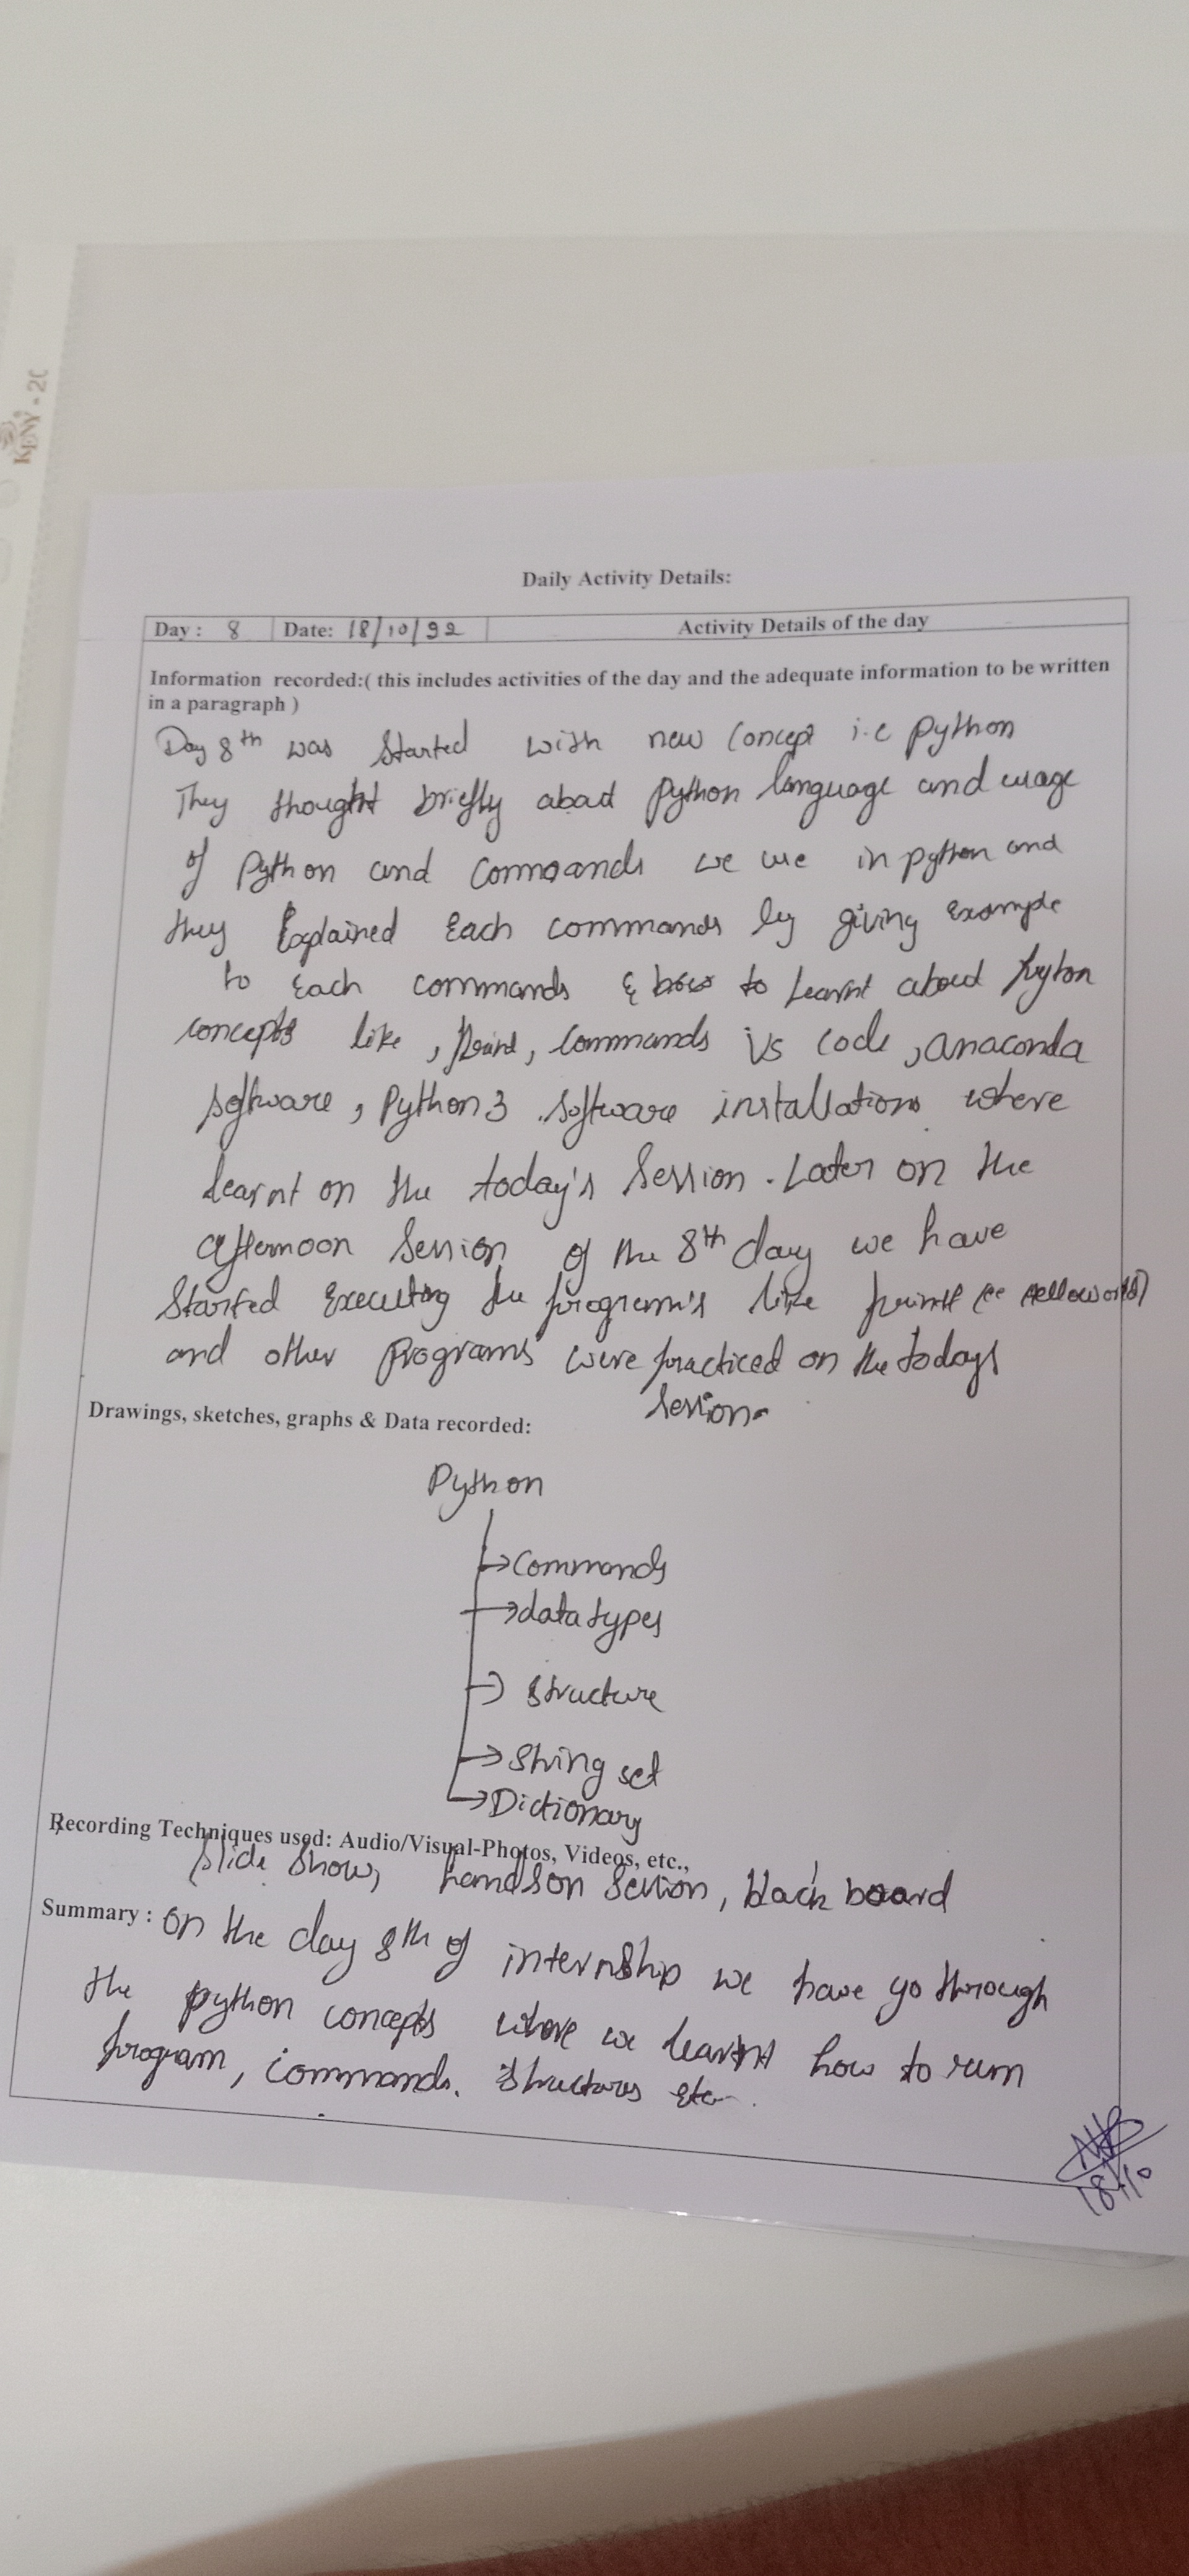 KENY - 20
Daily Activity Details:
Day : 8 Date: 18/10/22 Activity Details of the day
Information recorded:( this includes activities of the day and the adequate information to be written
in a paragraph )
Day 8th was started with new concept i.e python
They thought briefly about python language and usage
of python and commands we use in python and
they Explained Each commands by giving Example
to Each commands & how to learnt about pyton
concepts like , Print, commands VS code, anaconda
software, Python3 software installations where
learnt on the today's session. Later on the
afternoon session of the 8th day we have
started Executing the program's like print ( Helloworld)
and other programs were practiced on the todays
session.
Drawings, sketches, graphs & Data recorded:
Python
commands
data types
structure
string set
Dictionary
Recording Techniques used: Audio/Visual-Photos, Videos, etc.,
slide show, handson session, black board
Summary : on the day 8th of internship we have go through
the python concepts where we learnt how to run
program, commands. structures etc.
18/10